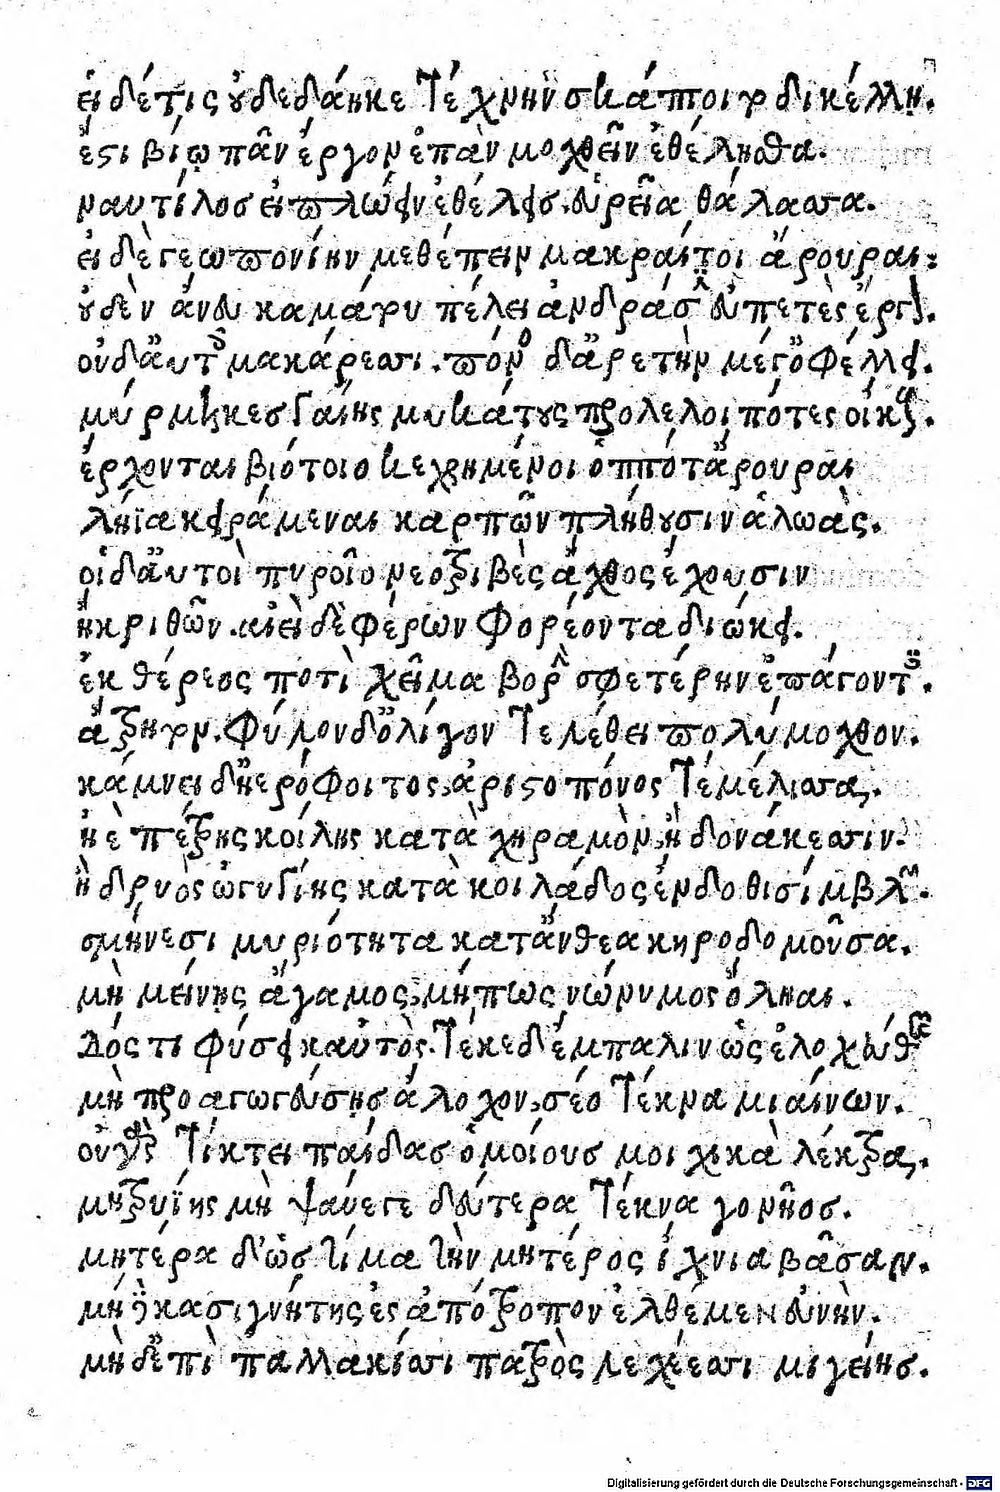 εἰ δέ τις οὐ δεδάηκε τέχνην σκάπτοιτο δικέλλῃ.
ἔστι βίῳ πᾶν ἔργον ἐπὰν μοχθεῖν ἐθέλησθα.
ναυτίλος εἰ πλώειν ἐθέλεις. εὐρεῖα θάλασσα.
εἰ δὲ γεωπονίην μεθέπειν μακραί τοι ἄρουραι:
οὐδὲν ἄνευ καμάτου πέλει ἀνδράσιν εὐπετὲς ἔργον.
οὐδ' αὐτοῖς μακάρεσσι. πόνος δ' ἀρετὴν μέγ' ὀφέλλει.
μύρμηκες γαίης μυχάτους προλελοιπότες οἴκους.
ἔρχονται βιότοιο κεχρημένοι ὁππότ' ἄρουραι
λήϊα κειράμεναι καρπῶν πλήθουσιν ἀλωάς.
οἱ δ' αὐτοὶ πυροῖο νεοτριβὲς ἄχθος ἔχουσιν
ἢ κριθῶν. αἰεὶ δὲ φέρων φορέοντα διώκει.
ἐκ θέρεος ποτὶ χεῖμα βορὴν σφετέρην ἐπάγοντες.
ἄτρυτοι. φύλον δ' ὀλίγον τελέθει πολύμοχθον.
κάμνει δ' ἠερόφοιτος ἀριστοπόνος τε μέλισσα,
ἠὲ πέτρης κοίλης κατὰ χηραμὸν, ἢ δονάκεσσιν.
ἢ δρυὸς ὠγυγίης κατὰ κοιλάδος ἔνδοθι σίμβλων.
σμήνεσι μυριότητα κατ' ἄνθεα κηροδομοῦσα.
μὴ μείνῃς ἄγαμος, μή πως νώνυμος ὄληαι.
Δός τι φύσει καὐτὸς. τέκε δ' ἔμπαλιν ὡς ἐλοχεύθης
μὴ προαγωγεύσῃς ἄλοχον, σέο τέκνα μιαίνων.
οὐ γὰρ τίκτει παῖδας ὁμοίους μοιχικὰ λέκτρα,
μητρυϊῆς μὴ ψαῦέ γε δεύτερα τέκνα γονῆος.
μητέρα δ' ὡς τίμα τὴν μητέρος ἴχνια βᾶσαν.
μὴ δὲ κασιγνήτης ἐς ἀπότροπον ἐλθέμεν εὐνήν.
μὴ δ' ἐπὶ παλλακίσι πατρὸς λεχέεσσι μιγείης.
Digitalisierung gefördert durch die Deutsche Forschungsgemeinschaft - DFG